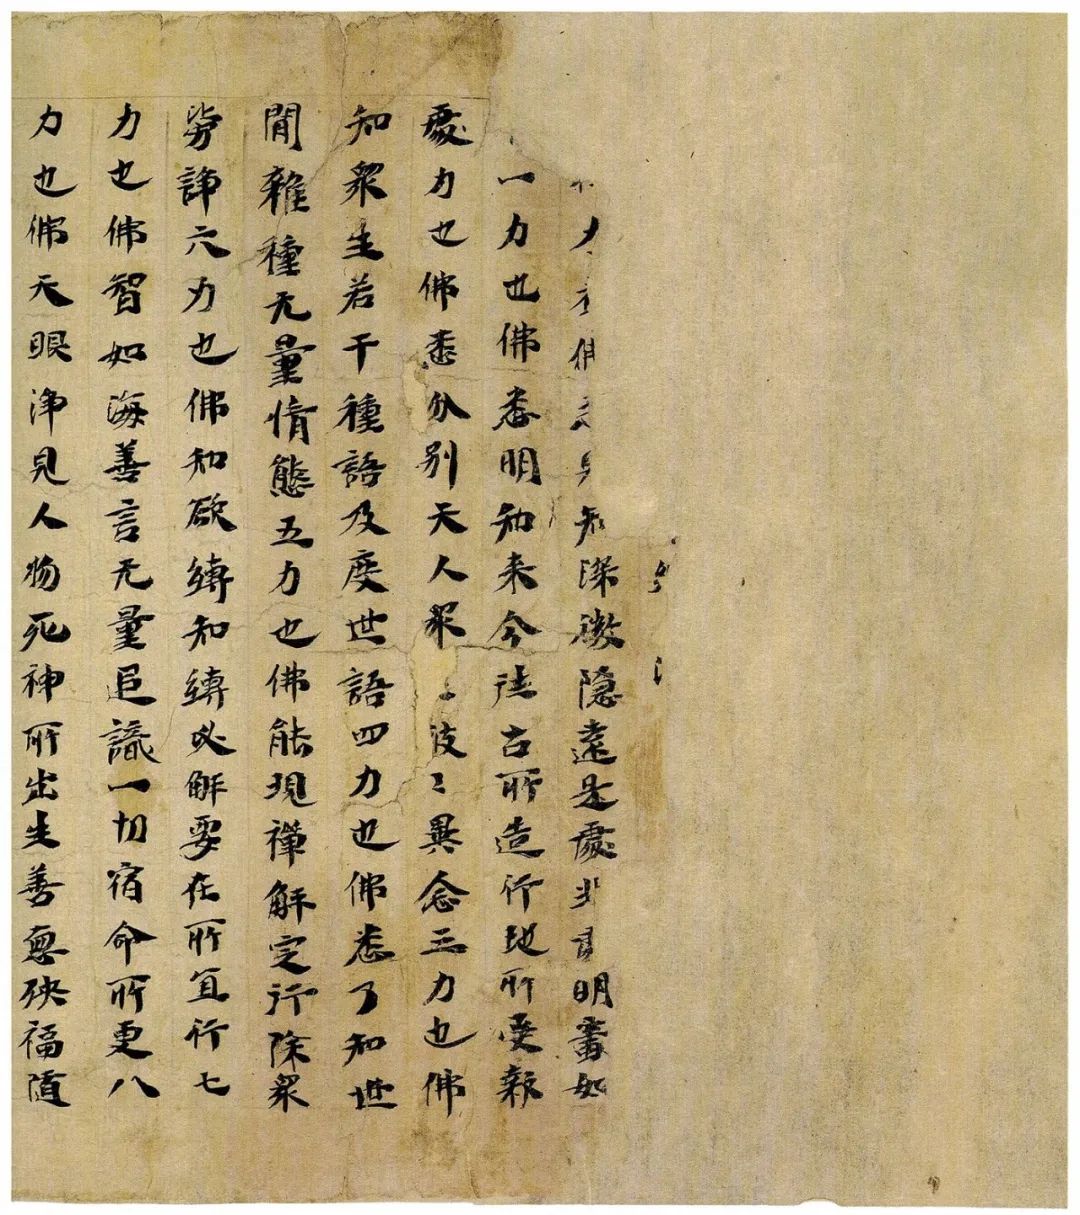 佛見知深微隱遠是處非明審如
一力也佛悉明知来今往古所造行地所受報
處力也佛悉分别天人眾彼〻異念三力也佛
知眾生若干種語及度世語四力也佛悉了知世
間雜種无量情態五力也佛能現禪解定行除眾
勞諍六力也佛知欲縛知縛必解要在所宜行七
力也佛智如海善言无量追識一切宿命所更八
力也佛天眼淨見人物死神所出生善惡殃福隨